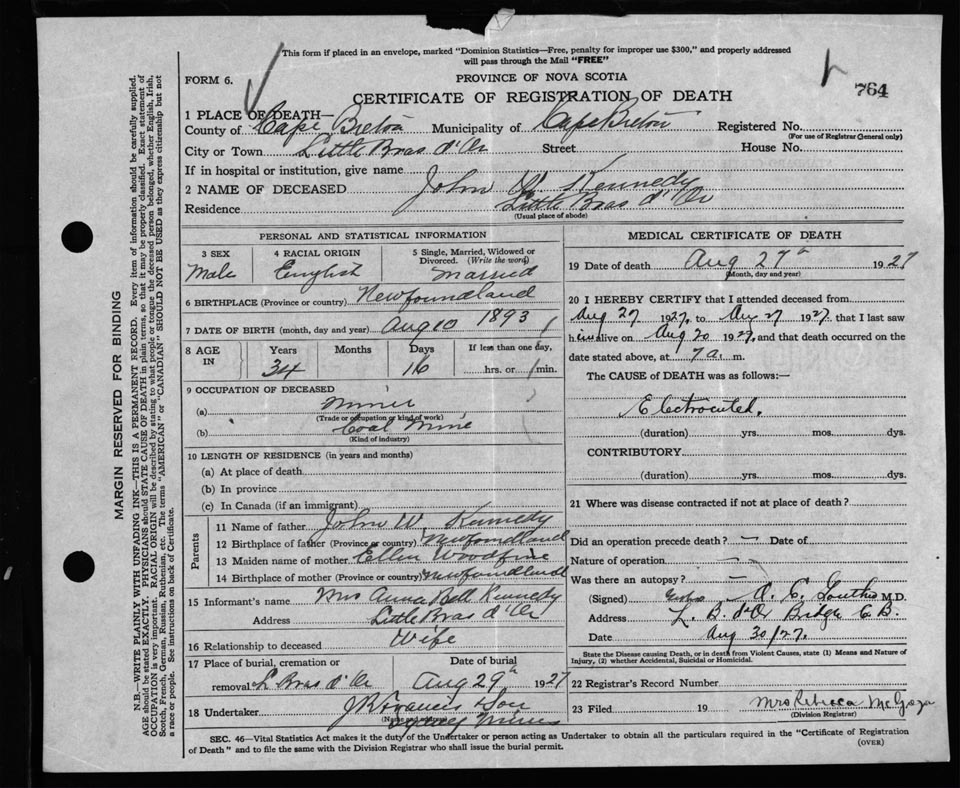 This form if placed in an envelope, marked "Dominion Statistics—Free, penalty for improper use $300," and properly addressed
will pass through the Mail "FREE"
FORM 6.
PROVINCE OF NOVA SCOTIA
764
CERTIFICATE OF REGISTRATION OF DEATH
1 PLACE OF DEATH—
County of Cape Breton Municipality of Cape Breton Registered No.
(For use of Registrar General only)
City or Town Little Bras d'Or Street House No.
If in hospital or institution, give name
2 NAME OF DECEASED John W. Kennedy
Residence Little Bras d'Or
(Usual place of abode)
PERSONAL AND STATISTICAL INFORMATION
3 SEX
Male
4 RACIAL ORIGIN
English
5 Single, Married, Widowed or
Divorced. (Write the word)
Married
6 BIRTHPLACE (Province or country) Newfoundland
7 DATE OF BIRTH (month, day and year) Aug 10 1893
8 AGE IN
Years Months Days If less than one day,
34 16 hrs. or min.
9 OCCUPATION OF DECEASED
(a) Miner
(Trade or occupation or kind of work)
(b) Coal Mine
(Kind of industry)
10 LENGTH OF RESIDENCE (in years and months)
(a) At place of death
(b) In province
(c) In Canada (if an immigrant)
Parents
11 Name of father John W. Kennedy
12 Birthplace of father (Province or country) Newfoundland
13 Maiden name of mother Ellen Woodfine
14 Birthplace of mother (Province or country) Newfoundland
15 Informant's name Mrs Anna Bell Kennedy
Address Little Bras d'Or
16 Relationship to deceased Wife
17 Place of burial, cremation or Date of burial
removal L Bras d'Or Aug 29th 1927
18 Undertaker J R Francis & Son
(Name and address)
Sydney Mines
MEDICAL CERTIFICATE OF DEATH
19 Date of death Aug 27th 1927
(Month, day and year)
20 I HEREBY CERTIFY that I attended deceased from
Aug 27 1927, to Aug 27 1927 that I last saw
him alive on Aug 20 1927, and that death occurred on the
date stated above, at 7 a. m.
The CAUSE OF DEATH was as follows:—
Electrocuted.
(duration) yrs. mos. dys.
CONTRIBUTORY
(duration) yrs. mos. dys.
21 Where was disease contracted if not at place of death?
Did an operation precede death? — Date of
Nature of operation —
Was there an autopsy? —
(Signed) A. C. M.D.
Address L. B. d'Or Bridge C B.
Date Aug 30/27.
State the Disease causing Death, or in death from Violent Causes, state (1) Means and Nature of
Injury, (2) whether Accidental, Suicidal or Homicidal.
22 Registrar's Record Number
23 Filed 19 Mrs Rebecca
(Division Registrar)
SEC. 46—Vital Statistics Act makes it the duty of the Undertaker or person acting as Undertaker to obtain all the particulars required in the "Certificate of Registration
of Death" and to file the same with the Division Registrar who shall issue the burial permit.
(OVER)
MARGIN RESERVED FOR BINDING
N.B.—WRITE PLAINLY WITH UNFADING INK—THIS IS A PERMANENT RECORD. Every item of information should be carefully supplied.
AGE should be stated EXACTLY. PHYSICIANS should STATE CAUSE OF DEATH in plain terms, so that it may be properly classified. Exact statement of
OCCUPATION is very important. RACIAL ORIGIN will be described by stating to what people or tongue the deceased person belonged, whether English, Irish,
Scotch, French, German, Russian, Ruthenian, etc. The terms "AMERICAN" or "CANADIAN" SHOULD NOT BE USED as they express citizenship but not
a race or people. See instructions on back of Certificate.